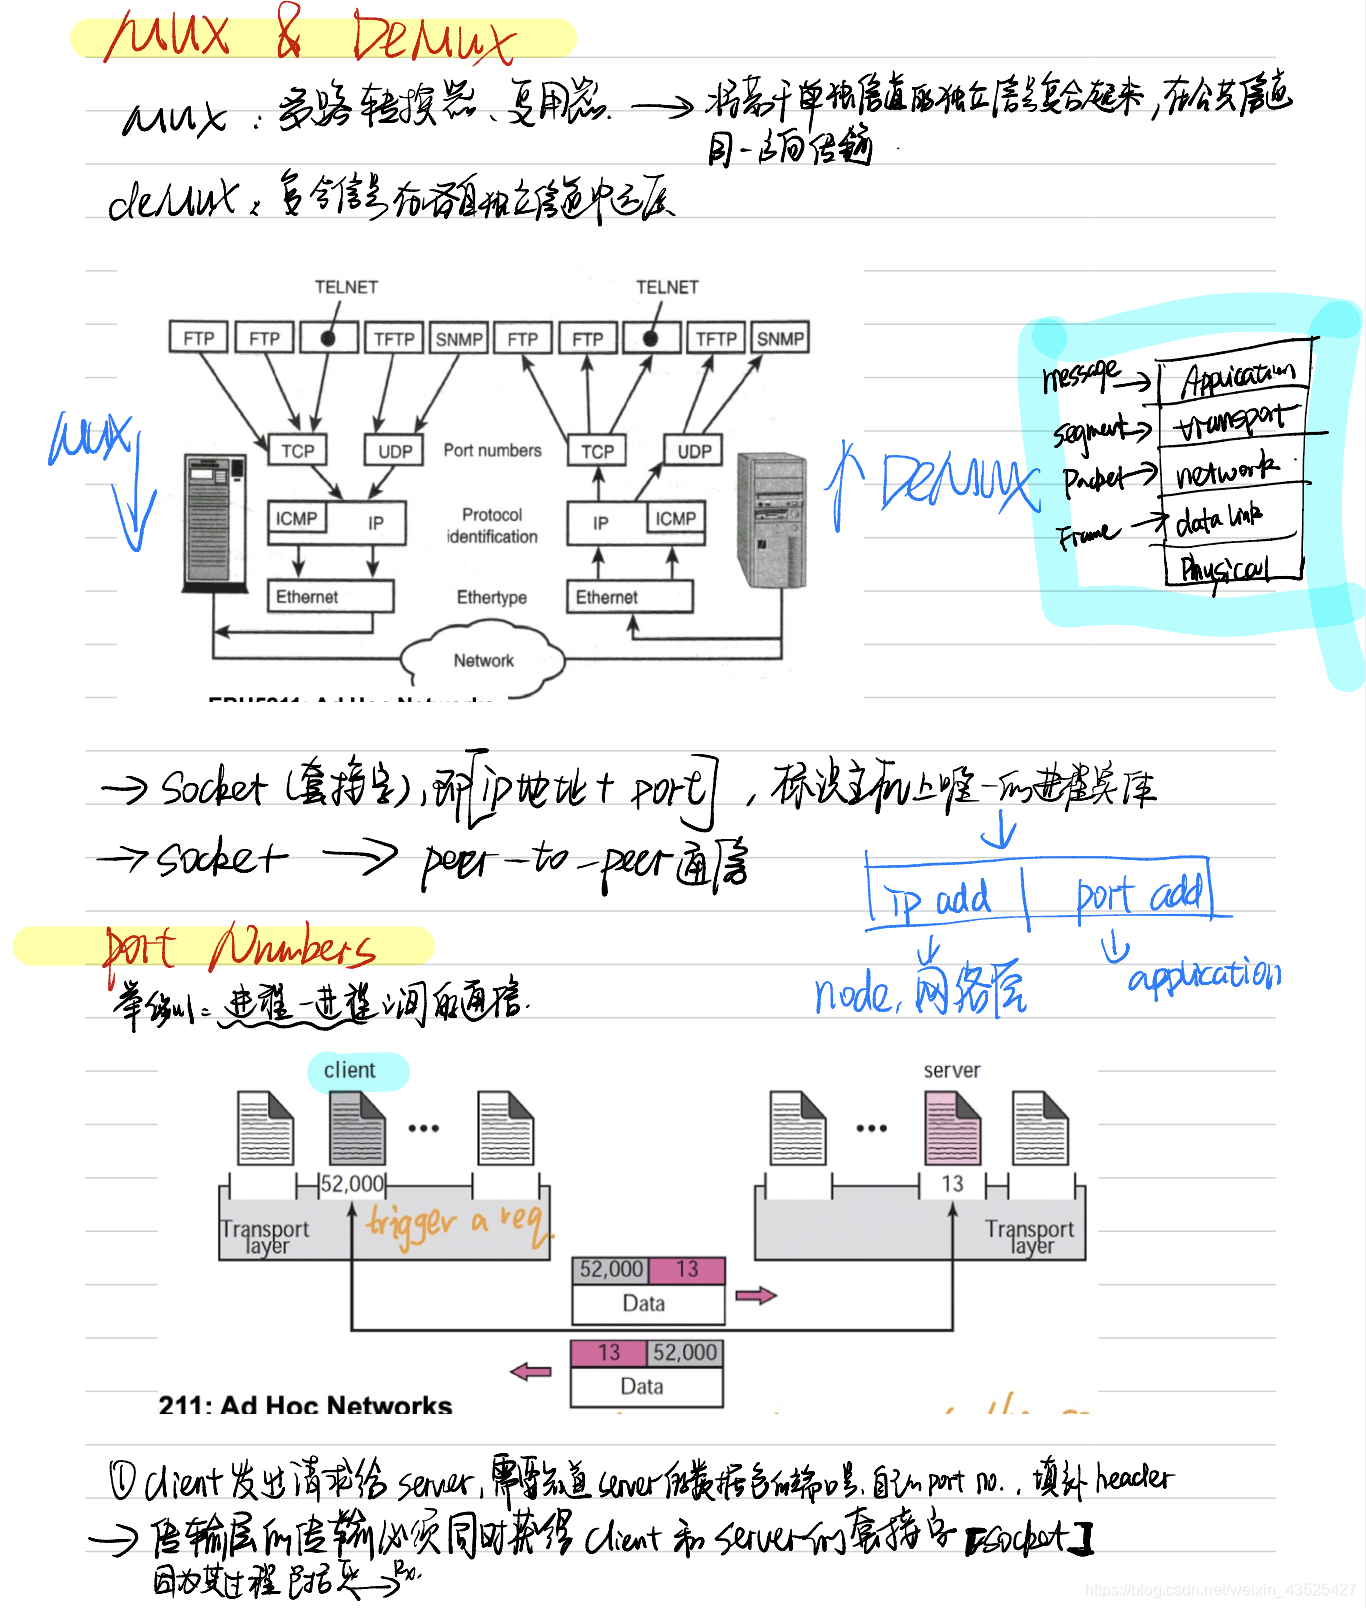 MUX & DeMUX
MUX: 多路转换器、复用器. → 将若干单独信道的独立信号复合起来,在公共信道
同一方向传输.
deMUX: 复合信号在各自独立信道中还原
TELNET TELNET
FTP FTP TFTP SNMP FTP FTP TFTP SNMP
message → Application
segment → transport
Packet → network
Frame → data link
Physical
MUX ↓
TCP UDP Port numbers TCP UDP
↑ DeMUX
ICMP IP Protocol identification IP ICMP
Ethernet Ethertype Ethernet
Network
211: Ad Hoc Networks
→ Socket (套接字), 即[ip地址 + port], 标识主机上唯一的进程实体
→ socket → peer-to-peer 通信
ip add port add
node, 网络层 application
port Numbers
举例: 进程-进程之间的通信.
client server
52,000 13
Transport layer trigger a req. Transport layer
52,000 13
Data
13 52,000
Data
211: Ad Hoc Networks
① client 发出请求给 server, 需要知道 server 的数据包的端口号, 自己的port no., 填补header
→ 传输层的传输必须同时获得 client 和 server的套接字 [socket]
因为其过程包括 Tx → Rx.
https://blog.csdn.net/weixin_43525427